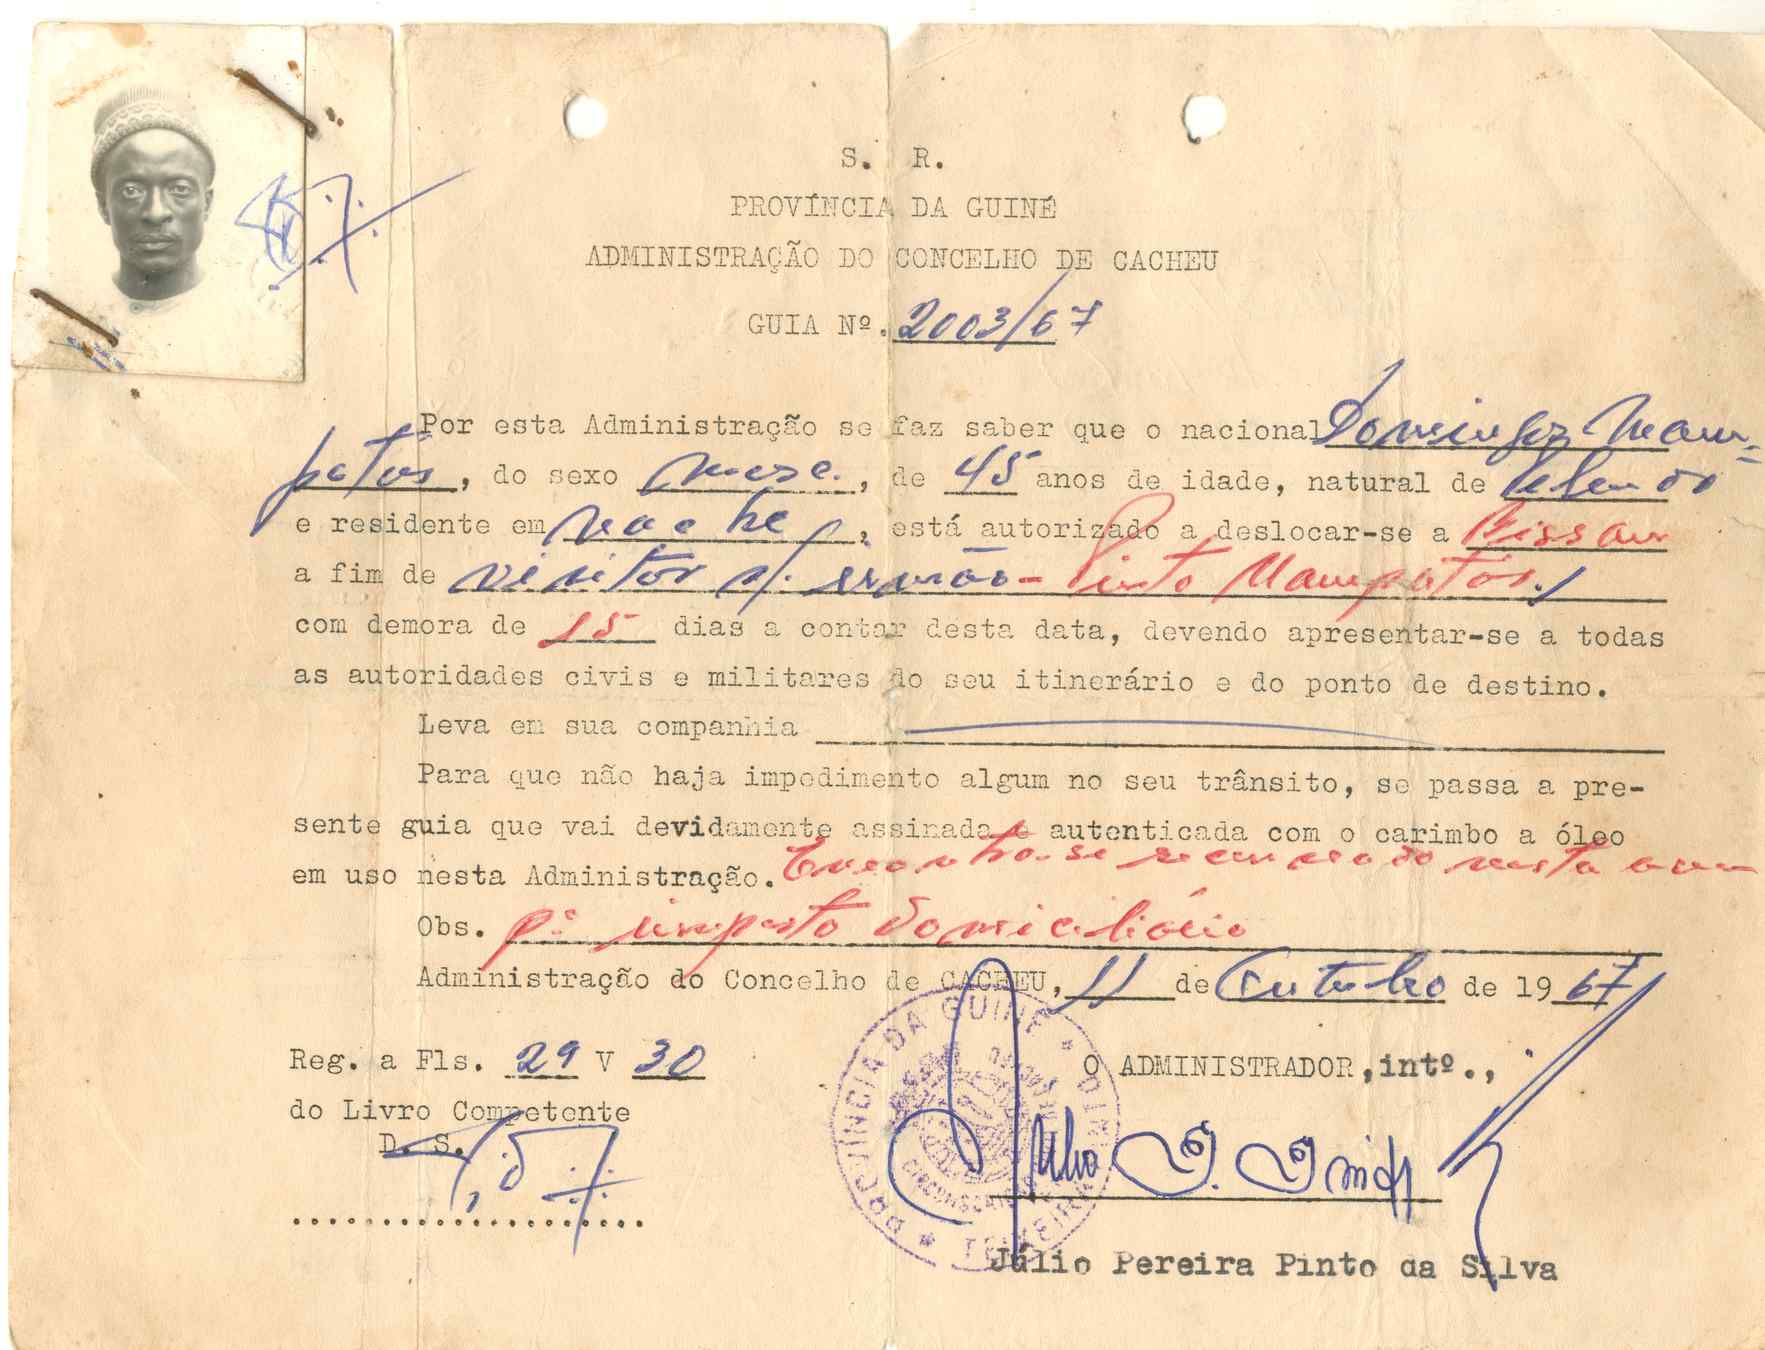 S. R.
PROVÍNCIA DA GUINÉ
ADMINISTRAÇÃO DO CONCELHO DE CACHEU
GUIA Nº. 2003/67
Por esta Administração se faz saber que o nacional Domingos Mam-
patás, do sexo masc., de 45 anos de idade, natural de
e residente em, está autorizado a deslocar-se a Bissau
a fim de visitar s/. irmão - Pinto Mampatás,
com demora de 15 dias a contar desta data, devendo apresentar-se a todas
as autoridades civis e militares do seu itinerário e do ponto de destino.
Leva em sua companhia
Para que não haja impedimento algum no seu trânsito, se passa a pre-
sente guia que vai devidamente assinada e autenticada com o carimbo a óleo
em uso nesta Administração. Encontra-se recenseado nesta adm
Obs. pº imposto domiciliário
Administração do Concelho de CACHEU, 11 de Outubro de 1967
Reg. a Fls. 29 V 30
O ADMINISTRADOR, intº.,
do Livro Competente
D. S.
PROVÍNCIA DA GUINÉ
Júlio Pereira Pinto da Silva